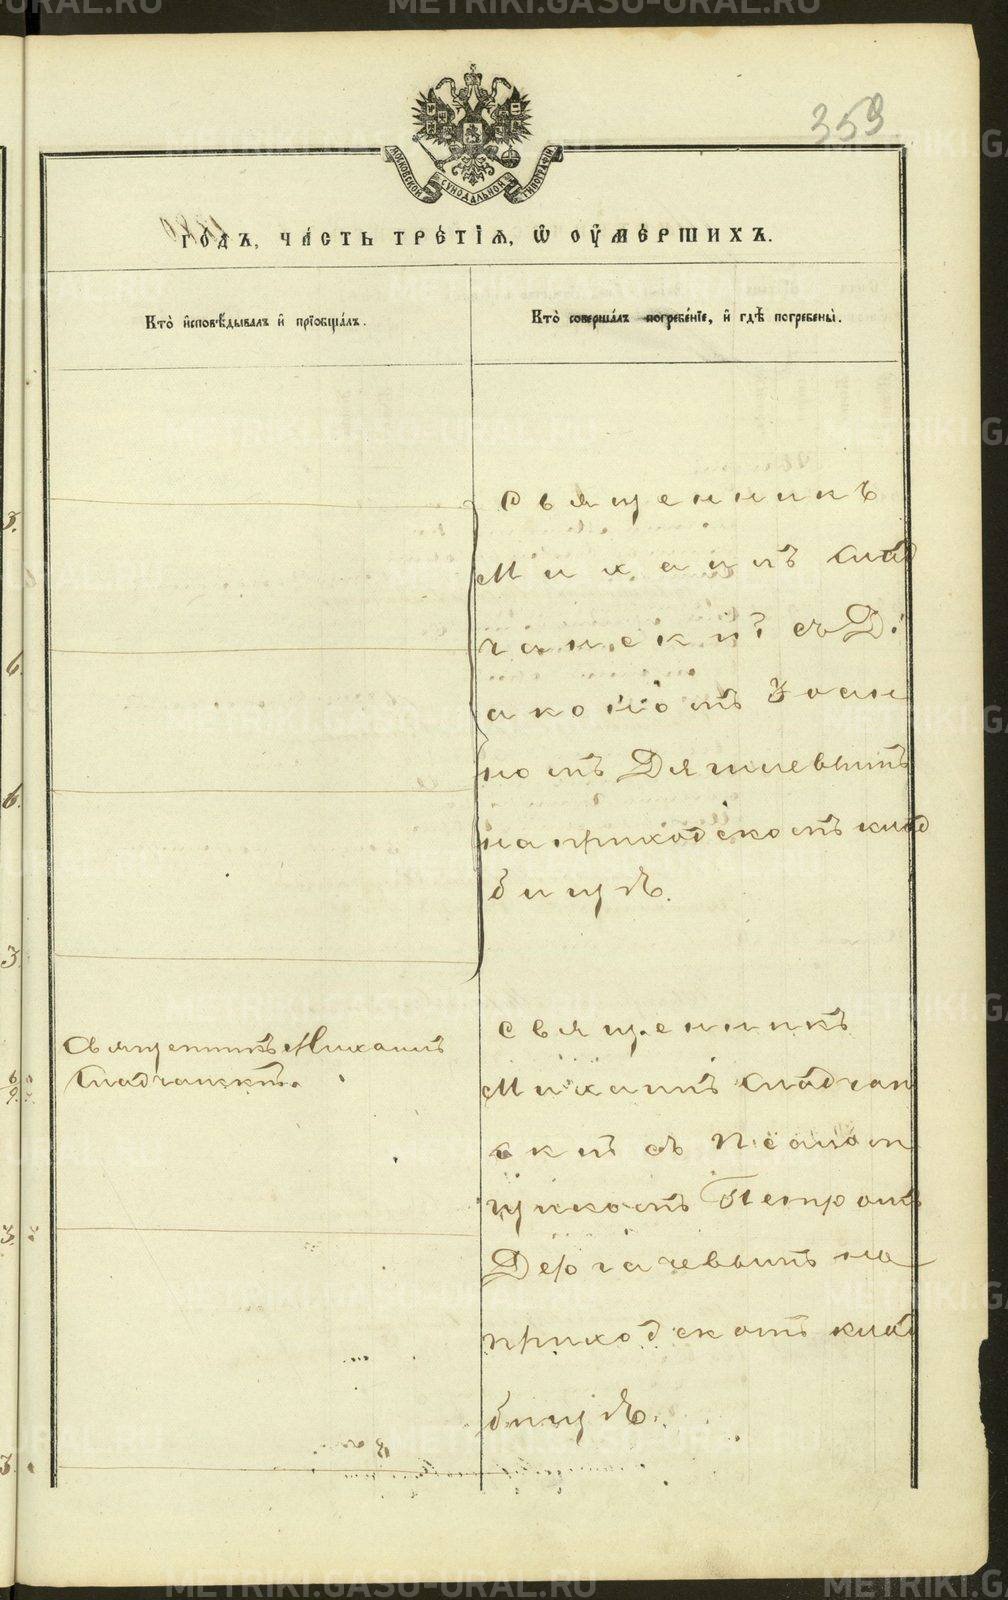 METRIKI.GASO-URAL.RU
359
МОСКОВСКОЙ СѴНОДАЛЬНОЙ ТИПОГРАФІИ
го́дъ, ча́сть тре́тїѧ, ѡ҆ ᲂу҆ме́ршихъ.
Кто̀ и҆сповѣ́дывалъ и҆ прїѡбща́лъ.
Кто̀ соверша́лъ погребе́нїе, и҆ гдѣ̀ погребены̀.
Священникъ
Михаилъ Слад
чанскій съ Ді
акономъ Іоан
номъ Дягилевымъ
на приходскомъ клад
бищѣ.
Священникъ Михаилъ
Сладчанскій.
Священникъ
Михаилъ Сладчан
скій съ Псалом
щикомъ Петромъ
Дергачевымъ на
приходскомъ клад
бищѣ.